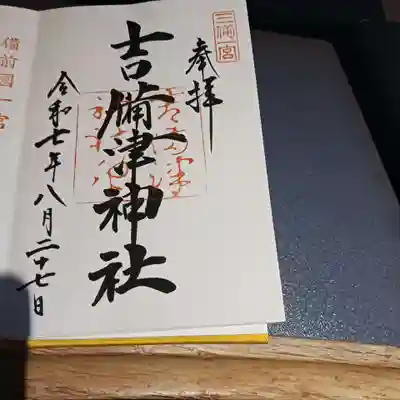 三備一宮
奉拝
吉備津神社
令和七年八月二十七日
備前国一宮